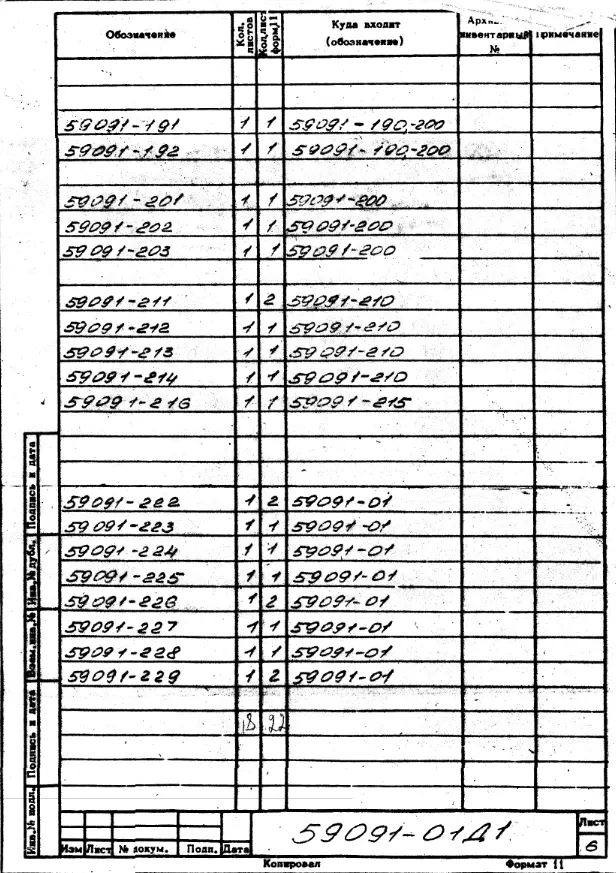 Обозначение Кол. листов Кол. лист форм.11 Куда входит (обозначение) инвентарный № примечание
59091-191 1 1 59091-190,-200
59091-192 1 1 59091-190,-200
59091-201 1 1 59091-200
59091-202 1 1 59091-200
59091-203 1 1 59091-200
59091-211 1 2 59091-210
59091-212 1 1 59091-210
59091-213 1 1 59091-210
59091-214 1 1 59091-210
59091-216 1 1 59091-215
59091-222 1 2 59091-01
59091-223 1 1 59091-01
59091-224 1 1 59091-01
59091-225 1 1 59091-01
59091-226 1 2 59091-01
59091-227 1 1 59091-01
59091-228 1 1 59091-01
59091-229 1 2 59091-01
18 22
Подпись и дата
Инв.№ дубл.
Взам.инв.№
Подпись и дата
Инв.№ подл.
59091-01Д1
Лист
6
Изм Лист № докум. Подп. Дата
Копировал Формат 11